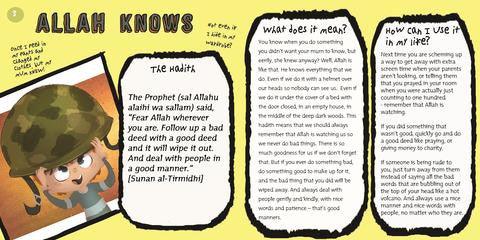 3
ALLAH KNOWS
Once I peed in
my pants and
changed my
clothes, but my
mum knew!
Not even if
I hide in my
wardrobe?
The Hadith
The Prophet (sal Allahu
alaihi wa sallam) said,
"Fear Allah wherever
you are. Follow up a bad
deed with a good deed
and it will wipe it out.
And deal with people in
a good manner."
[Sunan al-Tirmidhi]
What does it mean?
You know when you do something
you didn't want your mum to know, but
eerily, she knew anyway? Well, Allah is
like that. He knows everything that we
do. Even if we do it with a helmet over
our heads so nobody can see us. Even if
we do it under the cover of a bed with
the door closed, in an empty house, in
the middle of the deep dark woods. This
hadith means that we should always
remember that Allah is watching us so
we never do bad things. There is so
much goodness for us if we don't forget
that. But if you ever do something bad,
do something good to make up for it,
and the bad thing that you did will be
wiped away. And always deal with
people gently and kindly, with nice
words and patience – that's good
manners.
How can I use it
in my life?
Next time you are scheming up
a way to get away with extra
screen time when your parents
aren't looking, or telling them
that you prayed in your room
when you were actually just
counting to one hundred
- remember that Allah is
watching.
If you did something that
wasn't good, quickly go and do
a good deed like praying, or
giving money to charity.
If someone is being rude to
you, just turn away from them
instead of saying all the bad
words that are bubbling out of
the top of your head like a hot
volcano. And always use a nice
manner and nice words with
people, no matter who they are.